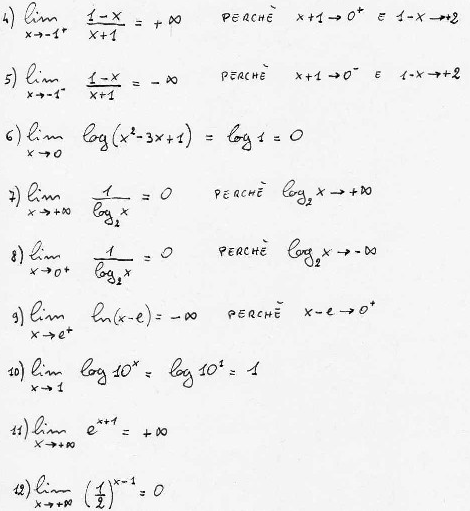 4) lim x→-1⁺ (1-x)/(x+1) = +∞ PERCHÈ x+1→0⁺ E 1-x→+2
5) lim x→-1⁻ (1-x)/(x+1) = -∞ PERCHÈ x+1→0⁻ E 1-x→+2
6) lim x→0 log(x²-3x+1) = log 1 = 0
7) lim x→+∞ 1/log₂x = 0 PERCHÈ log₂x→+∞
8) lim x→0⁺ 1/log₂x = 0 PERCHÈ log₂x→-∞
9) lim x→e⁺ ln(x-e) = -∞ PERCHÈ x-e→0⁺
10) lim x→1 log 10ˣ = log 10¹ = 1
11) lim x→+∞ eˣ⁺¹ = +∞
12) lim x→+∞ (1/2)ˣ⁻¹ = 0